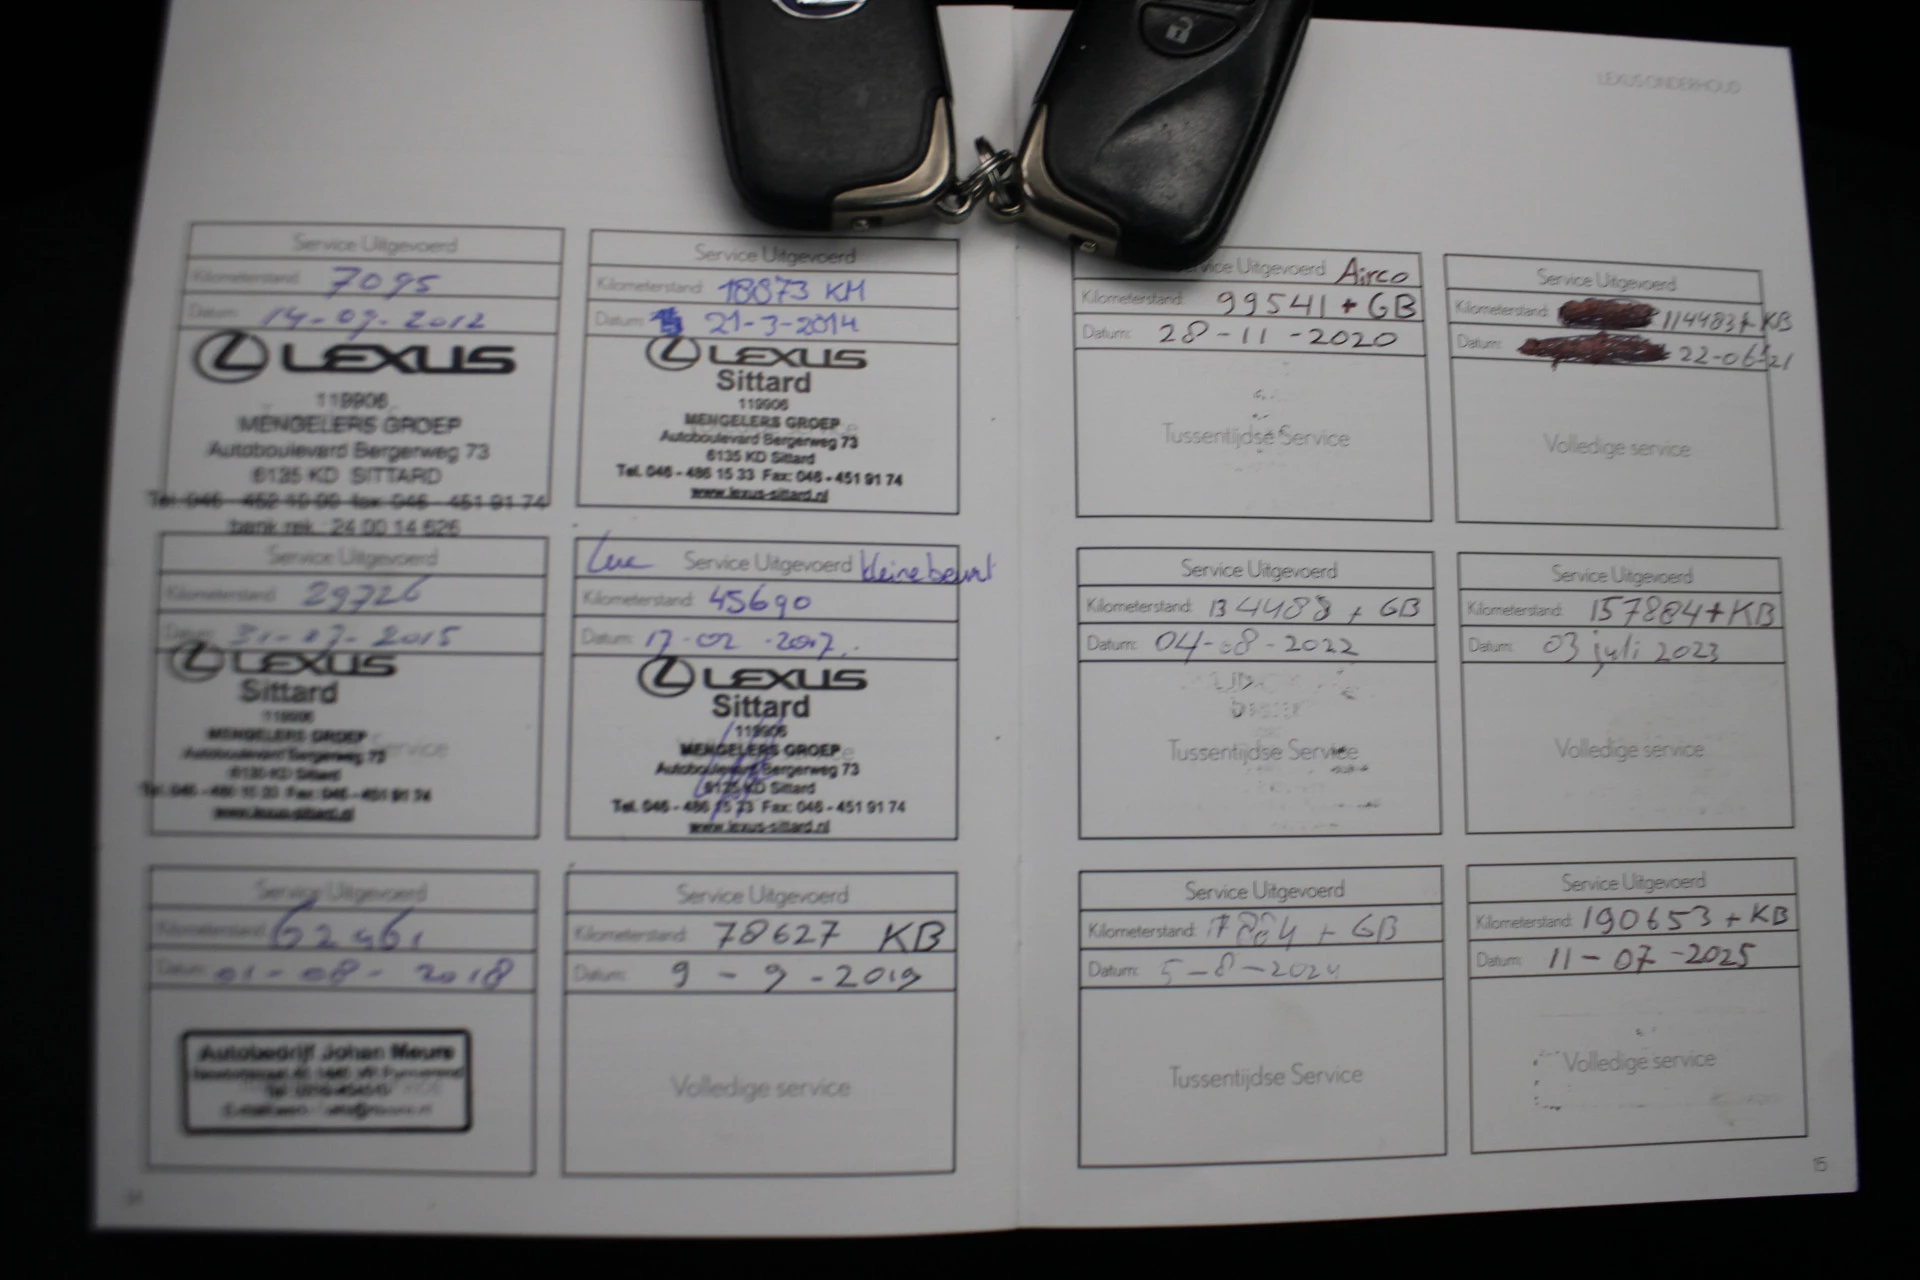 LEXUS ONDERHOUD
Service Uitgevoerd
Kilometerstand: 7095
Datum: 14-09-2012
LEXUS
119906
MENGELERS GROEP
Autoboulevard Bergerweg 73
6135 KD SITTARD
Tel. 046 - 452 10 00 fax 046 - 451 91 74
bank rek. 24 00 14 626
Service Uitgevoerd
Kilometerstand: 18873 KM
Datum: 21-3-2014
LEXUS
Sittard
119906
MENGELERS GROEP
Autoboulevard Bergerweg 73
6135 KD Sittard
Tel. 046 - 486 15 33 Fax: 046 - 451 91 74
www.lexus-sittard.nl
Service Uitgevoerd
Kilometerstand: 29726
Datum: 31-07-2015
LEXUS
Sittard
119906
MENGELERS GROEP
Autoboulevard Bergerweg 73
6135 KD Sittard
Tel. 046 - 486 15 33 Fax: 046 - 451 91 74
www.lexus-sittard.nl
Luc Service Uitgevoerd kleine beurt
Kilometerstand: 45690
Datum: 17-02-2017
LEXUS
Sittard
119906
MENGELERS GROEP
Autoboulevard Bergerweg 73
6135 KD Sittard
Tel. 046 - 486 15 33 Fax: 046 - 451 91 74
www.lexus-sittard.nl
Service Uitgevoerd
Kilometerstand: 62461
Datum: 01-08-2018
Autobedrijf Johan Meurs
Service Uitgevoerd
Kilometerstand: 78627 KB
Datum: 9 - 9 - 2019
Volledige service
Service Uitgevoerd Airco
Kilometerstand: 99541 + GB
Datum: 28-11-2020
Tussentijdse Service
Service Uitgevoerd
Kilometerstand: 114483 + KB
Datum: 22-06-21
Volledige service
Service Uitgevoerd
Kilometerstand: 134488 + GB
Datum: 04-08-2022
Tussentijdse Service
Service Uitgevoerd
Kilometerstand: 157884 + KB
Datum: 03 juli 2023
Volledige service
Service Uitgevoerd
Kilometerstand: + GB
Datum: 5-8-2024
Tussentijdse Service
Service Uitgevoerd
Kilometerstand: 190653 + KB
Datum: 11-07-2025
Volledige service
15